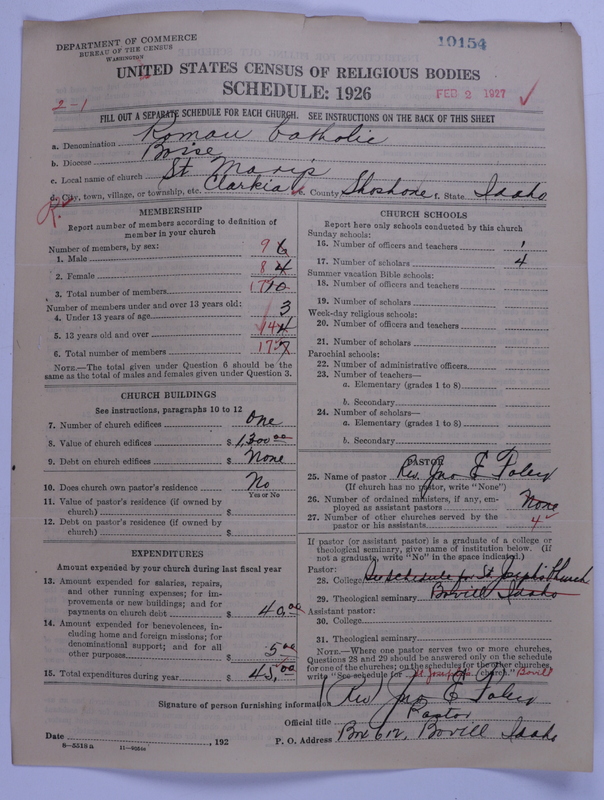 DEPARTMENT OF COMMERCE
BUREAU OF THE CENSUS
WASHINGTON
10154
UNITED STATES CENSUS OF RELIGIOUS BODIES
SCHEDULE: 1926
FEB 2 1927
2-1
FILL OUT A SEPARATE SCHEDULE FOR EACH CHURCH. SEE INSTRUCTIONS ON THE BACK OF THIS SHEET
a. Denomination Roman Catholic
b. Diocese Boise
c. Local name of church St. Mary's
d. City, town, village, or township, etc. Clarkia e. County Shoshone f. State Idaho
MEMBERSHIP
Report number of members according to definition of
member in your church
Number of members, by sex:
1. Male 9 6
2. Female 8 4
3. Total number of members 17 10
Number of members under and over 13 years old:
4. Under 13 years of age 3
5. 13 years old and over 14 4
6. Total number of members 17 7
NOTE.—The total given under Question 6 should be the
same as the total of males and females given under Question 3.
CHURCH BUILDINGS
See instructions, paragraphs 10 to 12
7. Number of church edifices One
8. Value of church edifices $ 1,300 00
9. Debt on church edifices $ None
10. Does church own pastor's residence No
Yes or No
11. Value of pastor's residence (if owned by
church) $
12. Debt on pastor's residence (if owned by
church) $
EXPENDITURES
Amount expended by your church during last fiscal year
13. Amount expended for salaries, repairs,
and other running expenses; for im-
provements or new buildings; and for
payments on church debt $ 40,00
14. Amount expended for benevolences, in-
cluding home and foreign missions; for
denominational support; and for all
other purposes $ 5 00
15. Total expenditures during year $ 45,00
CHURCH SCHOOLS
Report here only schools conducted by this church
Sunday schools:
16. Number of officers and teachers 1
17. Number of scholars 4
Summer vacation Bible schools:
18. Number of officers and teachers
19. Number of scholars
Week-day religious schools:
20. Number of officers and teachers
21. Number of scholars
Parochial schools:
22. Number of administrative officers
23. Number of teachers—
a. Elementary (grades 1 to 8)
b. Secondary
24. Number of scholars—
a. Elementary (grades 1 to 8)
b. Secondary
PASTOR
25. Name of pastor Rev. Jno E Foley
(If church has no pastor, write "None")
26. Number of ordained ministers, if any, em-
ployed as assistant pastors None
27. Number of other churches served by the
pastor or his assistants 4
If pastor (or assistant pastor) is a graduate of a college or
theological seminary, give name of institution below. (If
not a graduate, write "No" in the space indicated.)
Pastor:
28. College See schedule for St Joseph's Church
29. Theological seminary Bovill Idaho
Assistant pastor:
30. College
31. Theological seminary
NOTE.—Where one pastor serves two or more churches,
Questions 28 and 29 should be answered only on the schedule
for one of the churches; on the schedules for the other churches,
write "See schedule for St Joseph's church." Bovill
Signature of person furnishing information (Rev) Jno E Foley
Official title Pastor
Date , 192
P. O. Address Box 612, Bovill Idaho
8-5518a